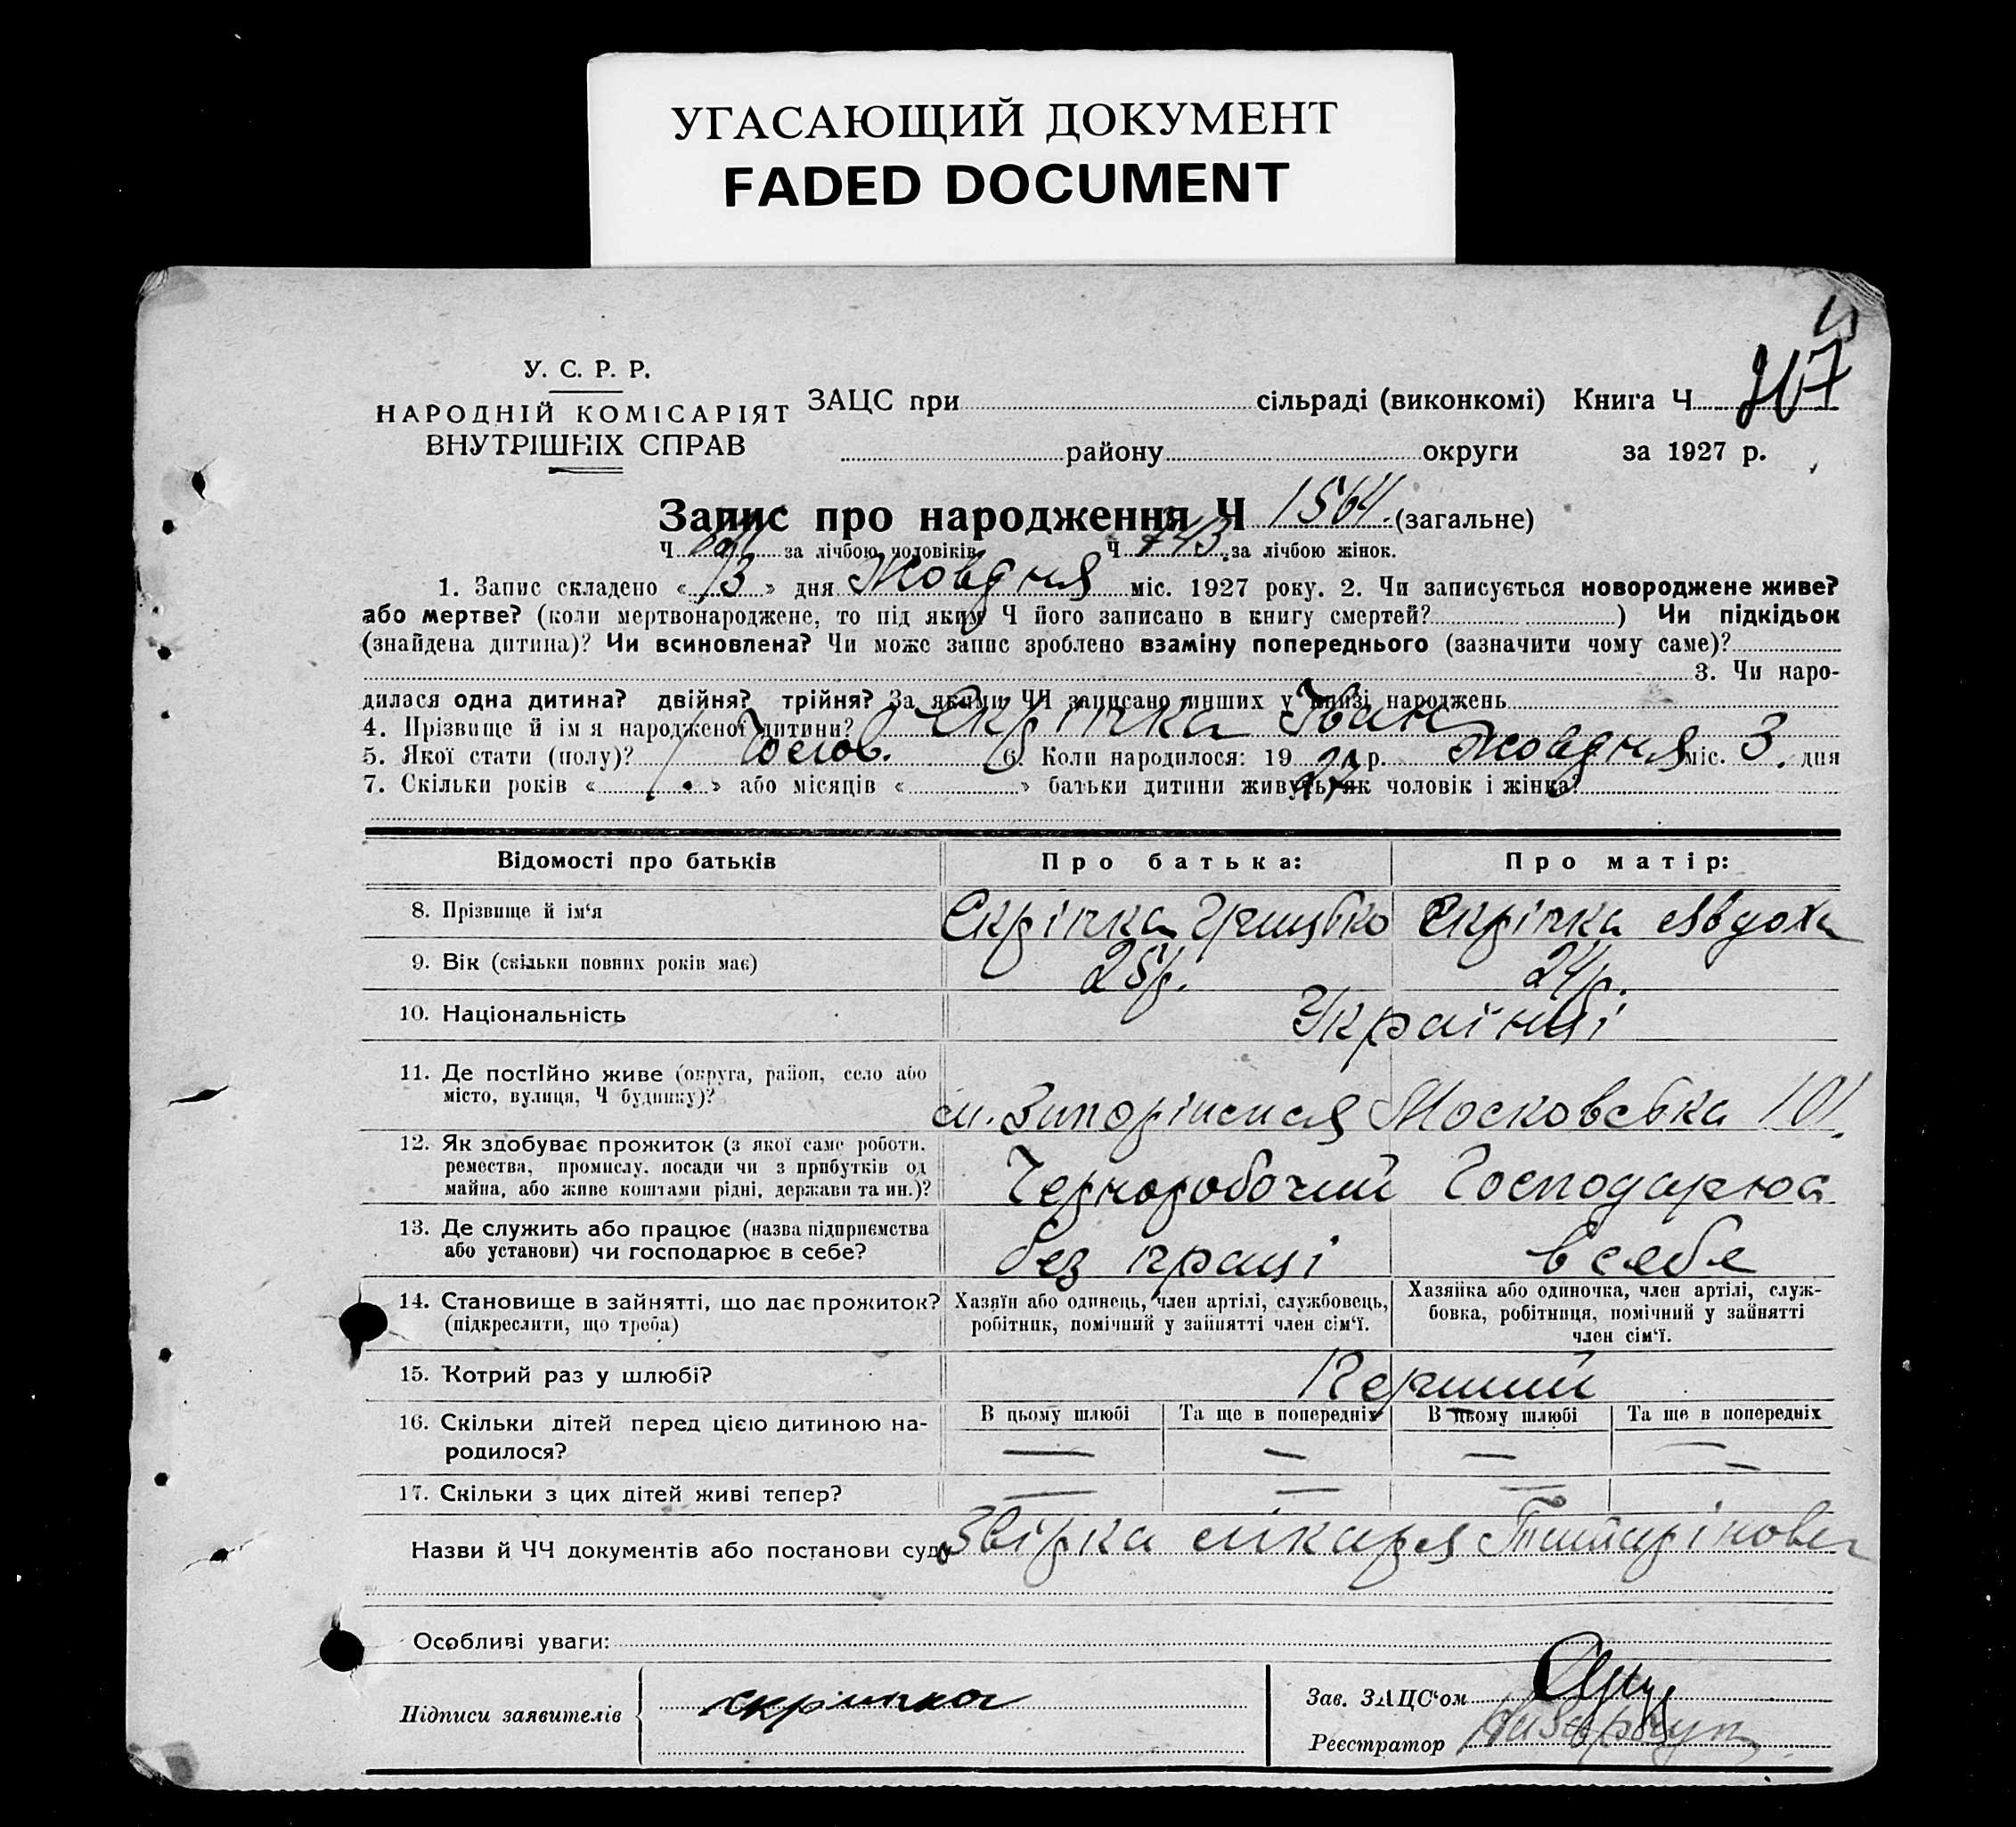 УГАСАЮЩИЙ ДОКУМЕНТ
FADED DOCUMENT
У. С. Р. Р.
НАРОДНІЙ КОМІСАРІЯТ
ВНУТРІШНІХ СПРАВ
ЗАЦС при сільраді (виконкомі) Книга Ч
району округи за 1927 р.
Запис про народження Ч 1564 (загальне)
Ч за лічбою чоловіків Ч 743 за лічбою жінок.
1. Запис складено «13» дня Жовдня міс. 1927 року. 2. Чи записується новороджене живе?
або мертве? (коли мертвонароджене, то під яким Ч його записано в книгу смертей? ) Чи підкідьок
(знайдена дитина)? Чи всиновлена? Чи може запис зроблено взаміну попереднього (зазначити чому саме)?
3. Чи наро-
дилася одна дитина? двійня? трійня? За якими ЧЧ записано инших у книзі народжень
4. Прізвище й ім я народженої дитини? Скріпка Іван
5. Якої стати (полу)? Чолов. 6. Коли народилося: 1927 р. Жовдня міс. 3. дня
7. Скільки років « » або місяців « » батьки дитини живуть як чоловік і жінка?
Відомості про батьків Про батька: Про матір:
8. Прізвище й ім‘я Скріпка Грицько Скріпка Явдоха
9. Вік (скільки повних років має) 25р. 24р.
10. Національність Українці
11. Де постійно живе (округа, район, село або
місто, вулиця, Ч будинку)?
м. Запоріжжя Московська 101.
12. Як здобуває прожиток (з якої саме роботи.
ремества, промислу. посади чи з прибутків од
майна, або живе коштами рідні, держави та ин.)?
Чернороботчий Господарюа
13. Де служить або працює (назва підприємства
або установи) чи господарює в себе?
без праці в себе
14. Становище в зайнятті, що дає прожиток?
(підкреслити, що треба)
Хазяїн або одинець, член артілі, службовець,
робітник, помічний у зайнятті член сім‘ї.
Хазяйка або одиночка, член артілі, служ-
бовка, робітниця, помічний у зайнятті
член сім‘ї.
15. Котрий раз у шлюбі? Перший
16. Скільки дітей перед цією дитиною на-
родилося?
В цьому шлюбі Та ще в попередніх В цьому шлюбі Та ще в попередніх
— — — —
17. Скільки з цих дітей живі тепер? — — — —
Назви й ЧЧ документів або постанови суду Звірка лікаря
Особливі уваги:
Підписи заявителів Скріпка
Зав. ЗАЦС‘ом
Реєстратор